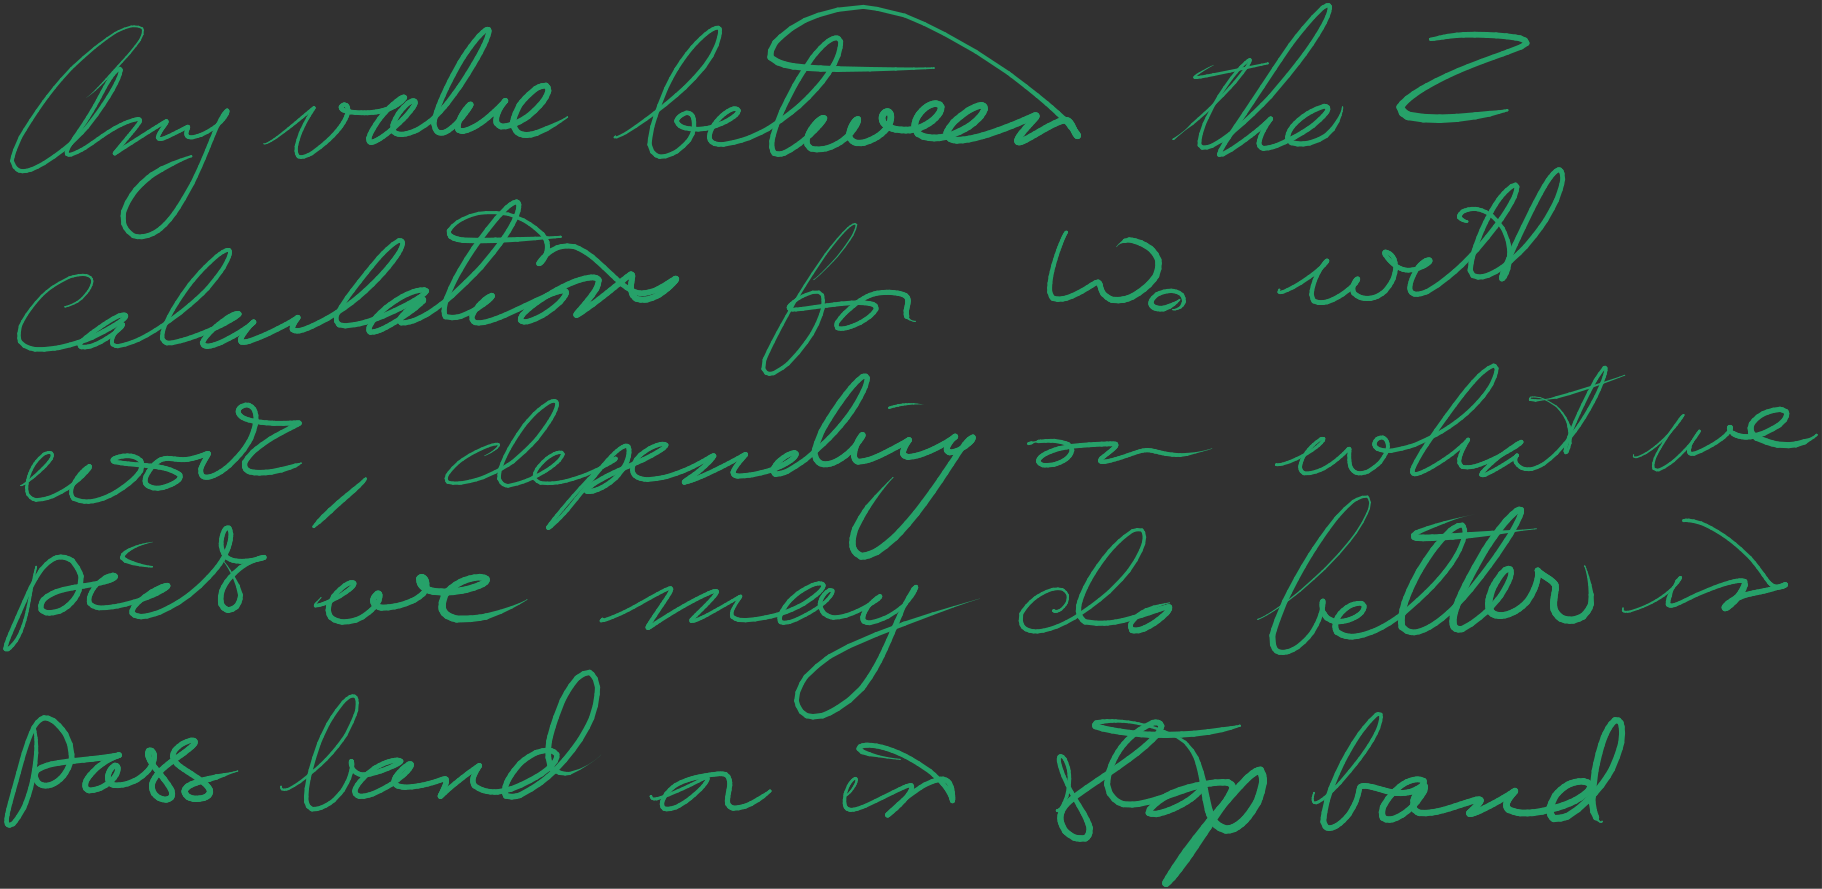 Any value between the 2
Calculation for ω₀ with
work, depending on what we
pick we may do better in
pass band or in stop band